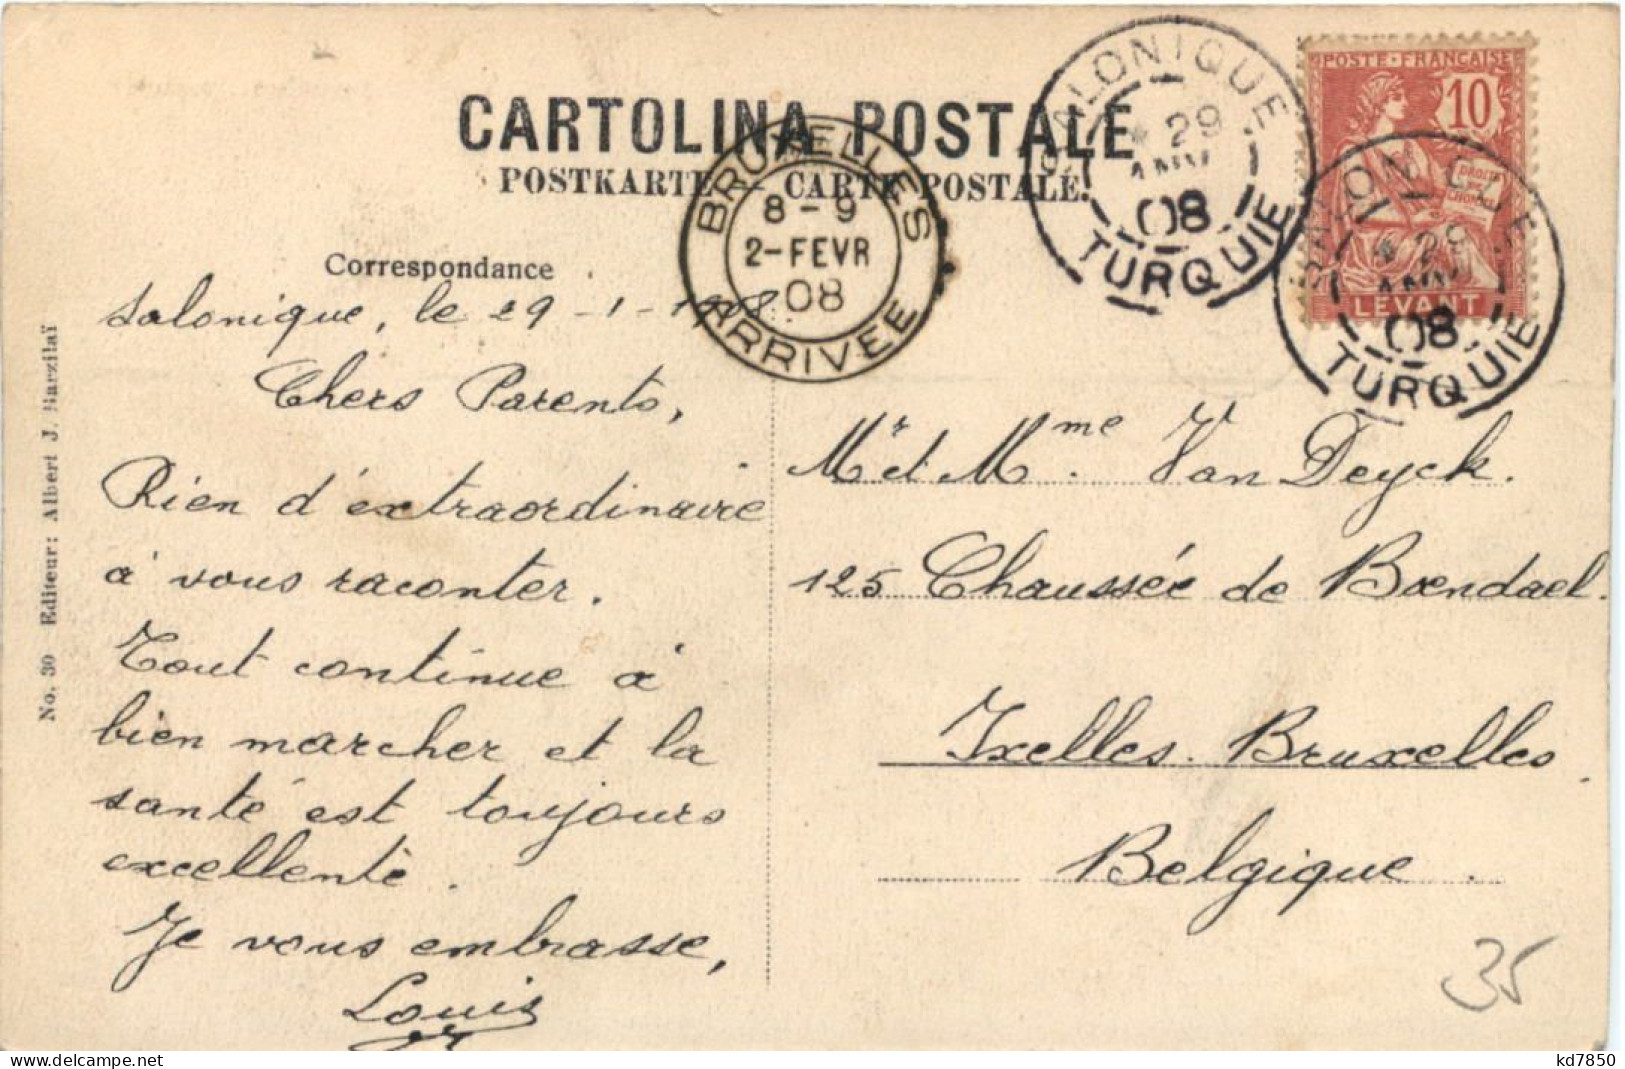 CARTOLINA POSTALE
POSTKARTE — CARTE POSTALE.
SALONIQUE
* 29
JANV
08
TURQUIE
POSTE FRANÇAISE
10
DROITS
DE
L'HOMME
LEVANT
SALONIQUE
* 29
JANV
08
TURQUIE
BRUXELLES
8-9
2-FEVR
08
ARRIVEE
Correspondance
Salonique, le 29-1-1908.
Chers Parents,
Rien d'extraordinaire
à vous raconter.
Tout continue à
bien marcher et la
santé est toujours
excellente.
Je vous embrasse,
Louis
Mr et Mme. Van Deyck.
125 Chaussée de Boendael.
Ixelles. Bruxelles.
Belgique.
35
No. 30 Editeur: Albert J. Barzilaï
delcampe.net
kd7850